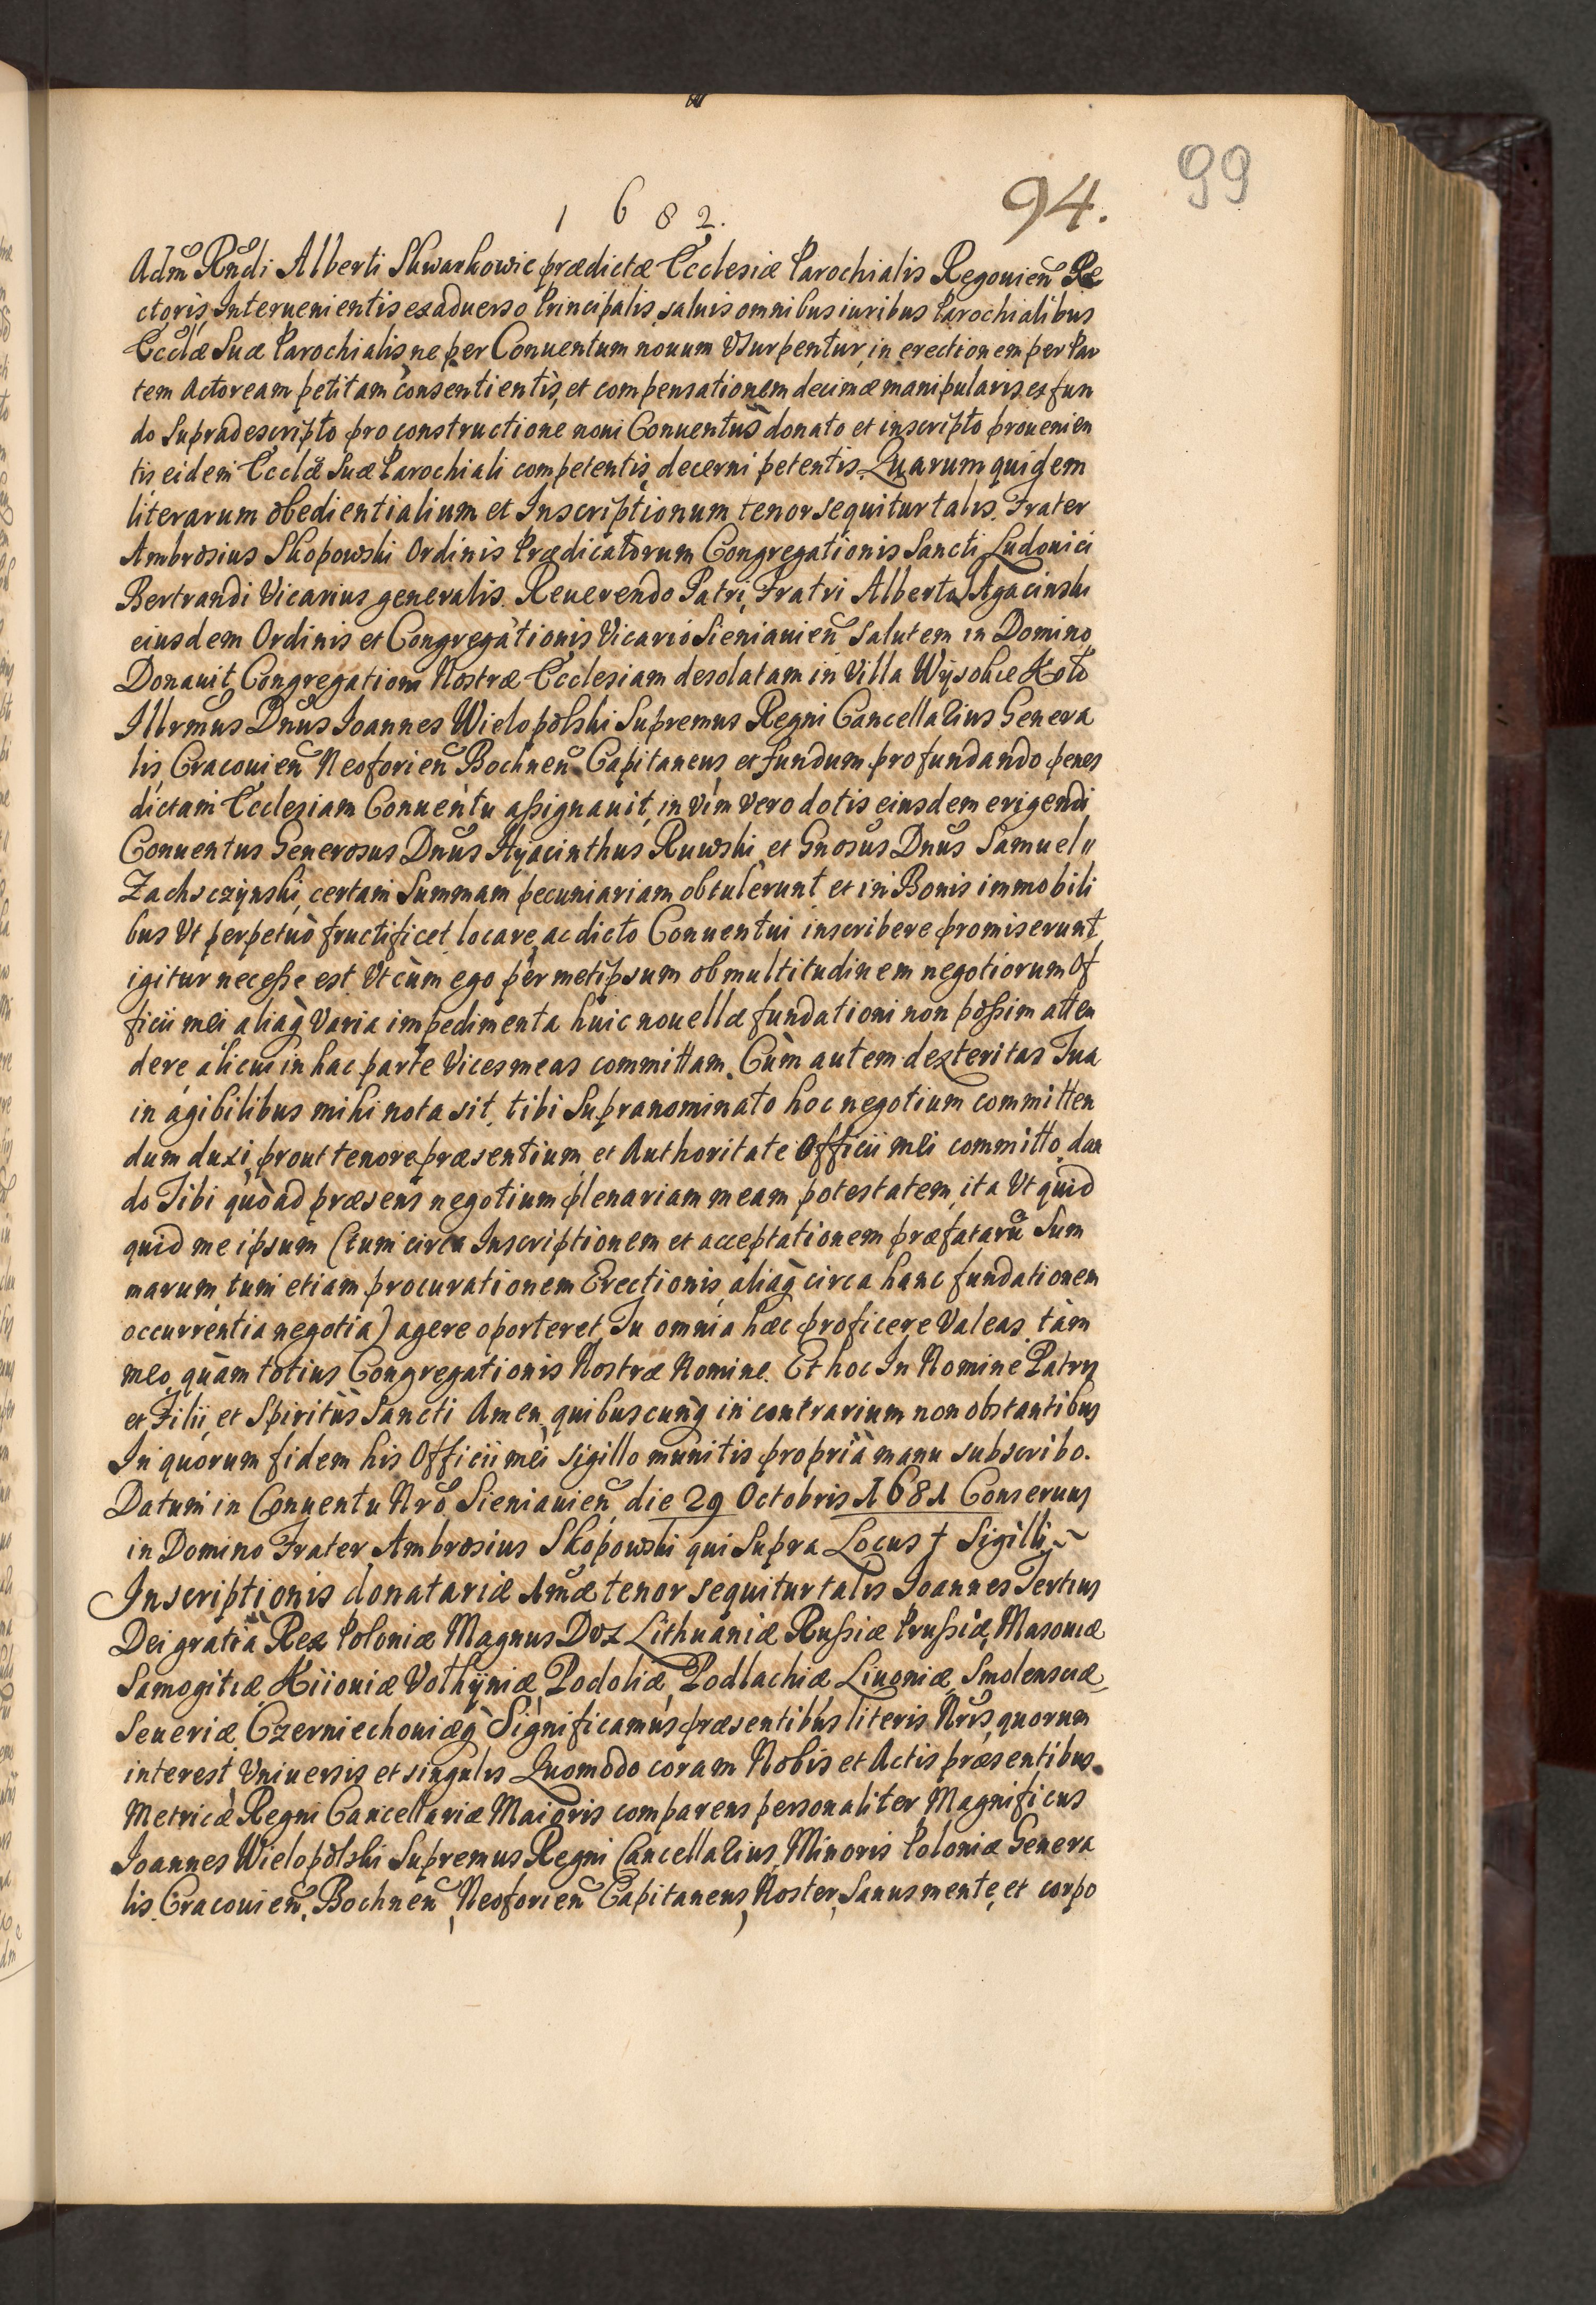 99
94.
1 6 8 2.
Adm Rndi Alberti Skwarkowic prædictæ Ecclesiæ Parochialis Regouien Re
ctoris, Interuenientis exaduerso Principalis, saluis omnibus iuribus Parochialibus
Ecclæ Suæ Parochialis ne per Conuentum nouum Vsurpentur, in erectionem per Par
tem Actoream petitam consentientis, et compensationem decimæ manipularis ex fun
do Supradescripto pro constructione noui Conuentus donato et inscripto prouenien
tis eidem Ecclæ Suæ Parochiali competentis, decerni petentis. Quarum quidem
literarum obedientialium et Inscriptionum tenor sequitur talis. Frater
Ambrosius Skopowski Ordinis Prædicatorum Congregationis Sancti Ludouici
Bertrandi Vicarius generalis. Reuerendo Patri, Fratri Alberto Agacinski
eiusdem Ordinis et Congregationis Vicario Sieniauien Salutem in Domino
Donauit Congregationi Nostræ Ecclesiam desolatam in Villa Wysokie Koło
Illrmus Dnus Ioannes Wielopolski Supremus Regni Cancellarius Genera
lis Cracouien Neoforien Bochnen Capitaneus et fundum pro fundando penes
dictam Ecclesiam Conuentu assignauit, in vim vero dotis eiusdem erigendi
Conuentus Generosus Dnus Hyacinthus Ruwski et Gnosus Dnus Samuel
Zachsczynski, certam Summam pecuniariam obtulerunt et in Bonis immobili
bus Vt perpetuò fructificet locare, ac dicto Conuentui inscribere promiserunt,
igitur necesse est Vt cùm ego per metipsum ob multitudinem negotiorum Of
ficii mei aliaq Varia impedimenta huic nouellæ fundationi non possim atten
dere, alicui in hac parte Vices meas committam. Cùm autem dexteritas Tua
in agibilibus mihi nota sit, tibi Supranominato hoc negotium committen
dum duxi, prout tenore præsentium et Authoritate Officii mei committo, dan
do Tibi quò ad præsens negotium plenariam meam potestatem, ita Vt quid
quid me ipsum (tum circa Inscriptionem et acceptationem præfataru Sum
marum, tum etiam procurationem Erectionis, aliaq circa hanc fundationem
occurrentia negotia) agere oporteret, Tu omnia hæc proficere Valeas, tàm
meo, quàm totius Congregationis Nostræ Nomine. Et hoc In Nomine Patris
et Filii, et Spiritùs Sancti Amen, quibuscunq in contrarium non obstantibus
In quorum fidem his Officii mei sigillo munitis propria manu subscribo.
Datum in Conuentu Nro Sieniauien, die 29 Octobris 1681 Conseruus
in Domino Frater Ambrosius Skopowski qui Supra Locus † Sigilli
Inscriptionis donatariæ 1mæ tenor sequitur talis Ioannes Tertius
Dei gratia Rex Poloniæ Magnus Dux Lithuaniæ Russiæ Prussiæ, Masouiæ
Samogitiæ Kiiouiæ Volhyniæ, Podoliæ, Podlachiæ Liuoniæ, Smolensciæ,
Seueriæ, Czerniechouiæq Significamus præsentibus literis Nris, quorum
interest Vniuersis et singulis Quomodo coram Nobis et Actis præsentibus
Metricæ Regni Cancellariæ Maioris comparens personaliter Magnificus
Ioannes Wielopolski Supremus Regni Cancellarius, Minoris Poloniæ Genera
lis Cracouien, Bochnen, Neoforien Capitaneus, Noster, Sanus mente, et corpo